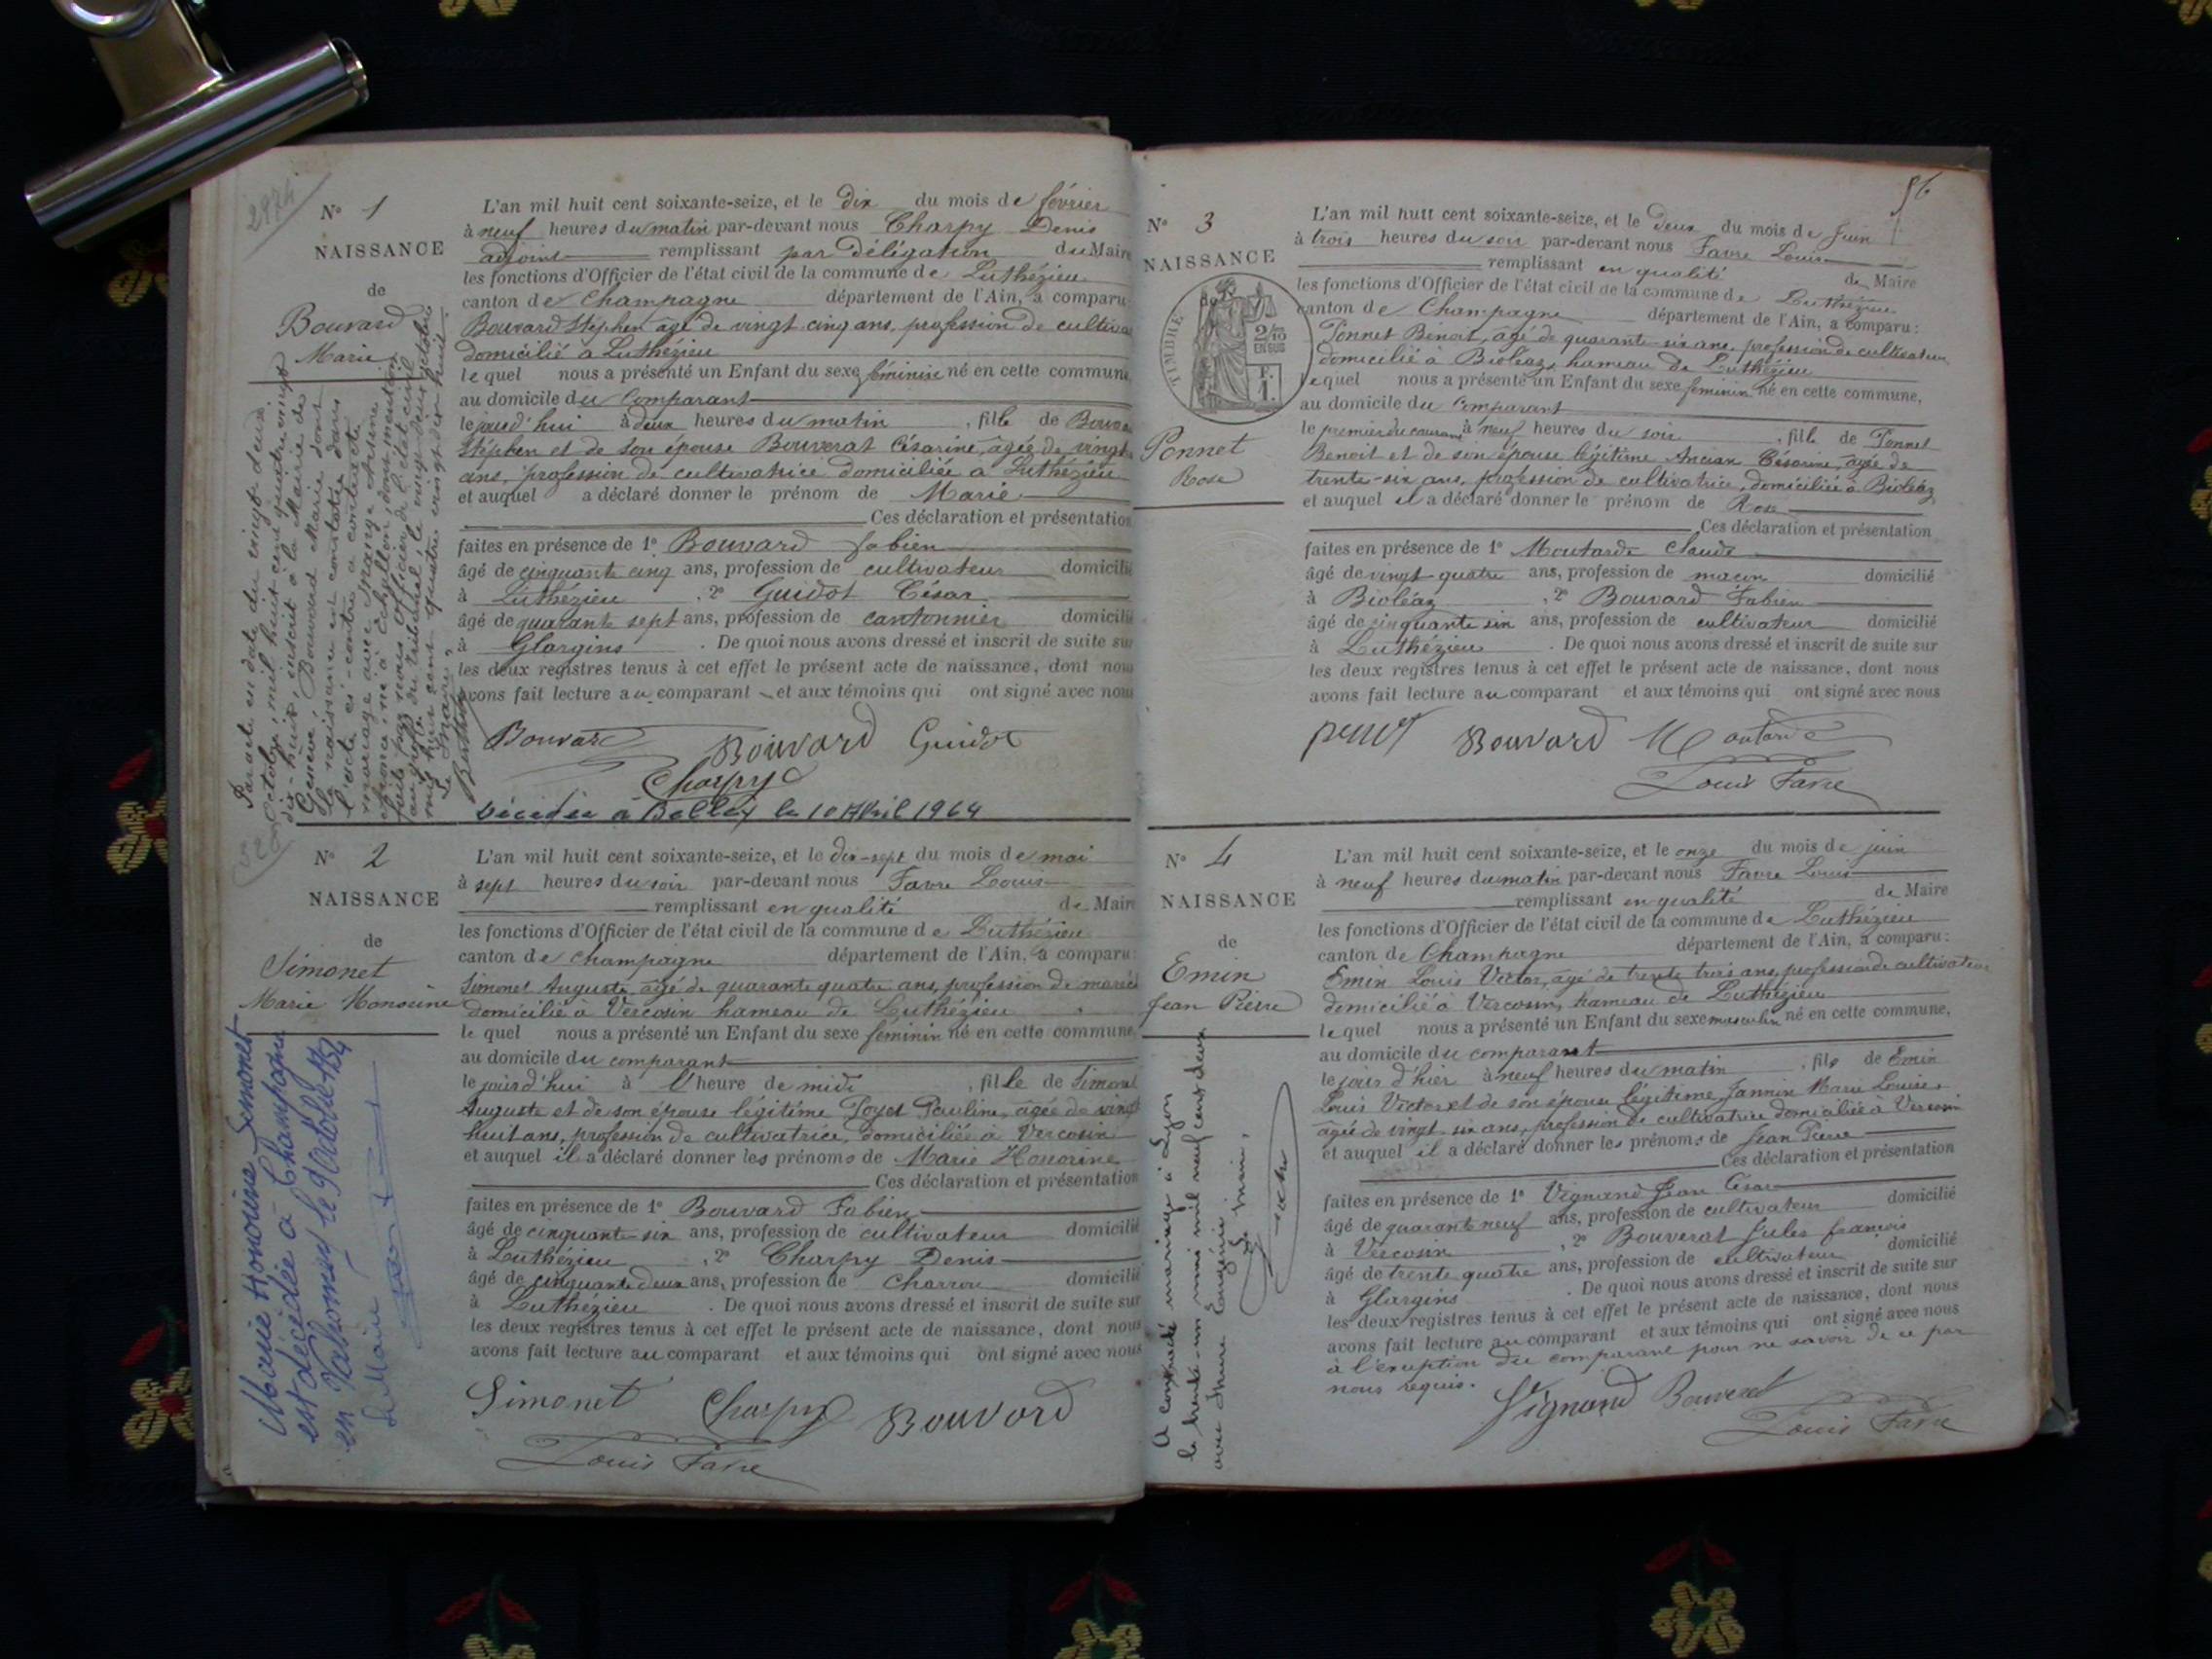 2974
N° 1
NAISSANCE
de
Bouvard
Marie
L'an mil huit cent soixante-seize, et le dix du mois de février
à neuf heures du matin par-devant nous Charpy Denis
adjoint remplissant par délégation du Maire
les fonctions d'Officier de l'état civil de la commune de Luthézieu
canton de Champagne département de l'Ain, a comparu:
Bouvard Stéphen âgé de vingt cinq ans, profession de cultiva
domicilié à Luthézieu
le quel nous a présenté un Enfant du sexe féminin né en cette commune,
au domicile du Comparant
le jourd'hui à deux heures du matin, fille de Bouva
Stéphen et de son épouse Bouverat Césarine, âgée de vingt
ans, profession de cultivatrice domiciliée à Luthézieu
et auquel a déclaré donner le prénom de Marie
Ces déclaration et présentation
faites en présence de 1° Bouvard fabien
âgé de cinquante cinq ans, profession de cultivateur domicilié
à Luthézieu, 2° Guidot César
âgé de quarante sept ans, profession de cantonnier domicilié
à Glargins. De quoi nous avons dressé et inscrit de suite sur
les deux registres tenus à cet effet le présent acte de naissance, dont nous
avons fait lecture au comparant et aux témoins qui ont signé avec nous
Bouvard Bouvard Guidot
Charpy
Décédée à Belley le 10 Avril 1964
Par acte en date du vingt deux
octobre mil huit cent quatre vingt
dix-huit, inscrit à la Mairie de
Genève, Bouvard Marie dont
la naissance est constatée dans
l'acte ci-contre a contracté
mariage avec
mention
faite par nous Officier de l'état civil
au greffe du tribunal le vingt deux octobre
mil huit cent quatre vingt dix huit.
Le Maire,
N° 2
NAISSANCE
de
Simonet
Marie Honorine
L'an mil huit cent soixante-seize, et le dix-sept du mois de mai
à sept heures du soir par-devant nous Favre Louis
remplissant en qualité de Maire
les fonctions d'Officier de l'état civil de la commune de Luthézieu
canton de Champagne département de l'Ain, a comparu:
Simonet Auguste, âgé de quarante quatre ans, profession de maréch
domicilié à Vercosin hameau de Luthézieu
le quel nous a présenté un Enfant du sexe féminin né en cette commune,
au domicile du comparant
le jourd'hui à l'heure de midi, fille de Simonet
Auguste et de son épouse légitime Poyet Pauline, âgée de vingt
huit ans, profession de cultivatrice, domiciliée à Vercosin
et auquel il a déclaré donner les prénoms de Marie Honorine
Ces déclaration et présentation
faites en présence de 1° Bouvard Fabien
âgé de cinquante-six ans, profession de cultivateur domicilié
à Luthézieu, 2° Charpy Denis
âgé de cinquante deux ans, profession de Charron domicilié
à Luthézieu. De quoi nous avons dressé et inscrit de suite sur
les deux registres tenus à cet effet le présent acte de naissance, dont nous
avons fait lecture au comparant et aux témoins qui ont signé avec nous
Simonet Charpy Bouvard
Louis Favre
Marie Honorine Simonet
est décédée à Champagne
en Valromey le 9 Octobre 1954
Le Maire
56
N° 3
NAISSANCE
de
TIMBRE
2/10
EN SUS
F.
1.
Ponnet
Rose
L'an mil huit cent soixante-seize, et le deux du mois de Juin
à trois heures du soir par-devant nous Favre Louis
remplissant en qualité de Maire
les fonctions d'Officier de l'état civil de la commune de Luthézieu
canton de Champagne département de l'Ain, a comparu:
Ponnet Benoit, âgé de quarante-six ans, profession de cultivateur
domicilié à Bioléaz, hameau de Luthézieu
le quel nous a présenté un Enfant du sexe féminin né en cette commune,
au domicile du Comparant
le premier du courant à neuf heures du soir, fille de Ponnet
Benoit et de son épouse légitime Ancian Césarine, âgée de
trente-six ans, profession de cultivatrice, domiciliée à Bioléaz
et auquel il a déclaré donner le prénom de Rose
Ces déclaration et présentation
faites en présence de 1° Moutarde Claude
âgé de vingt quatre ans, profession de maçon domicilié
à Bioléaz, 2° Bouvard Fabien
âgé de cinquante six ans, profession de cultivateur domicilié
à Luthézieu. De quoi nous avons dressé et inscrit de suite sur
les deux registres tenus à cet effet le présent acte de naissance, dont nous
avons fait lecture au comparant et aux témoins qui ont signé avec nous
Bouvard Moutarde
Louis Favre
N° 4
NAISSANCE
de
Emin
Jean Pierre
L'an mil huit cent soixante-seize, et le onze du mois de juin
à neuf heures du matin par-devant nous Favre Louis
remplissant en qualité de Maire
les fonctions d'Officier de l'état civil de la commune de Luthézieu
canton de Champagne département de l'Ain, a comparu:
Emin Louis Victor, âgé de trente trois ans, profession de cultivateur
domicilié à Vercosin, hameau de Luthézieu
le quel nous a présenté un Enfant du sexe masculin né en cette commune,
au domicile du comparant
le jour d'hier à neuf heures du matin, fils de Emin
Louis Victor et de son épouse légitime Jannin Marie Louise
âgée de vingt six ans, profession de cultivatrice domiciliée à Vercosin
et auquel il a déclaré donner les prénoms de Jean Pierre
Ces déclaration et présentation
faites en présence de 1° Vignand Jean César
âgé de quarante neuf ans, profession de cultivateur domicilié
à Vercosin, 2° Bouverat Jules françois
âgé de trente quatre ans, profession de cultivateur domicilié
à Glargins. De quoi nous avons dressé et inscrit de suite sur
les deux registres tenus à cet effet le présent acte de naissance, dont nous
avons fait lecture au comparant et aux témoins qui ont signé avec nous
à l'exeption du comparant pour ne savoir de ce par
nous requis.
Vignand Bouverat
Louis Favre
A contracté mariage à Lyon
le trente-un mai mil neuf cent deux
avec Eugénie
Le Maire,